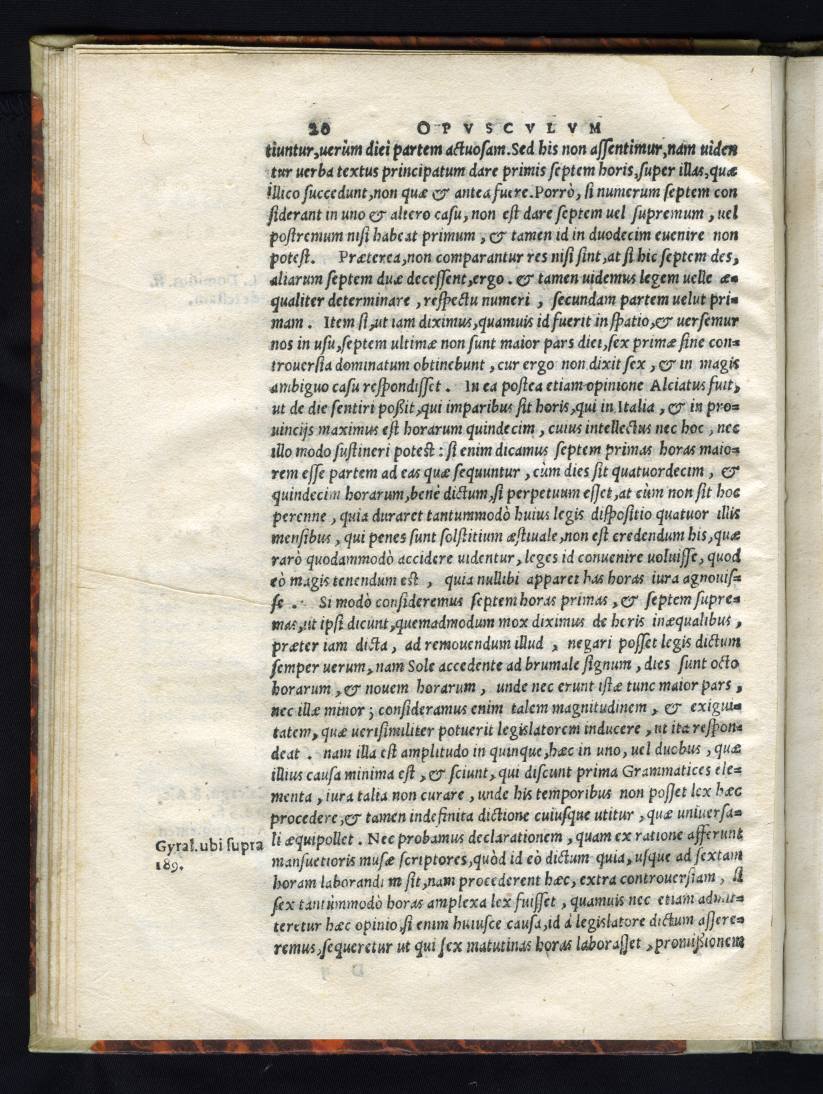 20 OPVSCVLVM
tiuntur,uerùm diei partem actuosam.Sed his non assentimur,nam uiden
tur uerba textus principatum dare primis septem horis,super illas,quæ
illico succedunt,non quæ & antea fuere.Porrò, si numerum septem con
siderant in uno & altero casu, non est dare septem uel supremum , uel
postremum nisi habeat primum , & tamen id in duodecim euenire non
potest. Præterea,non comparantur res nisi sint,at si hic septem des,
aliarum septem duæ decessent,ergo . & tamen uidemus legem uelle æ=
qualiter determinare , respectu numeri , secundam partem uelut pri=
mam . Item si,ut iam diximus,quamuis id fuerit in spatio,& uersemur
nos in usu,septem ultimæ non sunt maior pars diei,sex primæ sine con=
trouersia dominatum obtinebunt , cur ergo non dixit sex , & in magis
ambiguo casu respondisset . In ea postea etiam opinione Alciatus fuit,
ut de die sentiri poßit,qui imparibus sit horis,qui in Italia , & in pro=
uincijs maximus est horarum quindecim , cuius intellectus nec hoc , nec
illo modo sustineri potest : si enim dicamus septem primas horas maio=
rem esse partem ad eas quæ sequuntur , cùm dies sit quatuordecim , &
quindecim horarum,benè dictum,si perpetuum esset,at cùm non sit hoc
perenne , quia duraret tantummodò huius legis dispositio quatuor illis
mensibus , qui penes sunt solstitium æstiuale,non est credendum his,quæ
rarò quodammodò accidere uidentur, leges id conuenire uoluisse, quod
eò magis tenendum est , quia nullibi apparet has horas iura agnouis=
se . Si modò consideremus septem horas primas , & septem supre=
mas,ut ipsi dicunt,quemadmodum mox diximus de horis inæqualibus ,
præter iam dicta , ad remouendum illud , negari posset legis dictum
semper uerum, nam Sole accedente ad brumale signum , dies sunt octo
horarum , & nouem horarum , unde nec erunt istæ tunc maior pars ,
nec illæ minor ; consideramus enim talem magnitudinem , & exigui=
tatem, quæ uerisimiliter potuerit legislatorem inducere , ut ita respon=
deat . nam illa est amplitudo in quinque,hæc in uno, uel duobus , quæ
illius causa minima est , & sciunt, qui discunt prima Grammatices ele=
menta , iura talia non curare , unde his temporibus non posset lex hæc
procedere,& tamen indefinita dictione cuiusque utitur , quæ uniuersa=
li æquipollet . Nec probamus declarationem , quam ex ratione afferunt
mansuetioris musæ scriptores,quòd id eò dictum quia, usque ad sextam
horam laborandum sit,nam procederent hæc, extra controuersiam , si
sex tantùmmodò horas amplexa lex fuisset , quamuis nec etiam admit=
teretur hæc opinio,si enim huiusce causa,id à legislatore dictum assere=
remus,sequeretur ut qui sex matutinas horas laborasset , promißionem
Gyral. ubi supra
189.